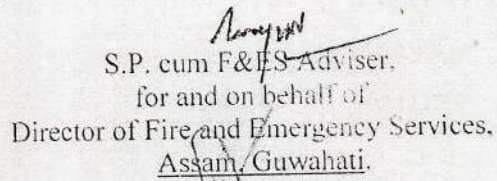 S.P. cum F&ES Adviser,
for and on behalf of
Director of Fire and Emergency Services,
Assam, Guwahati.